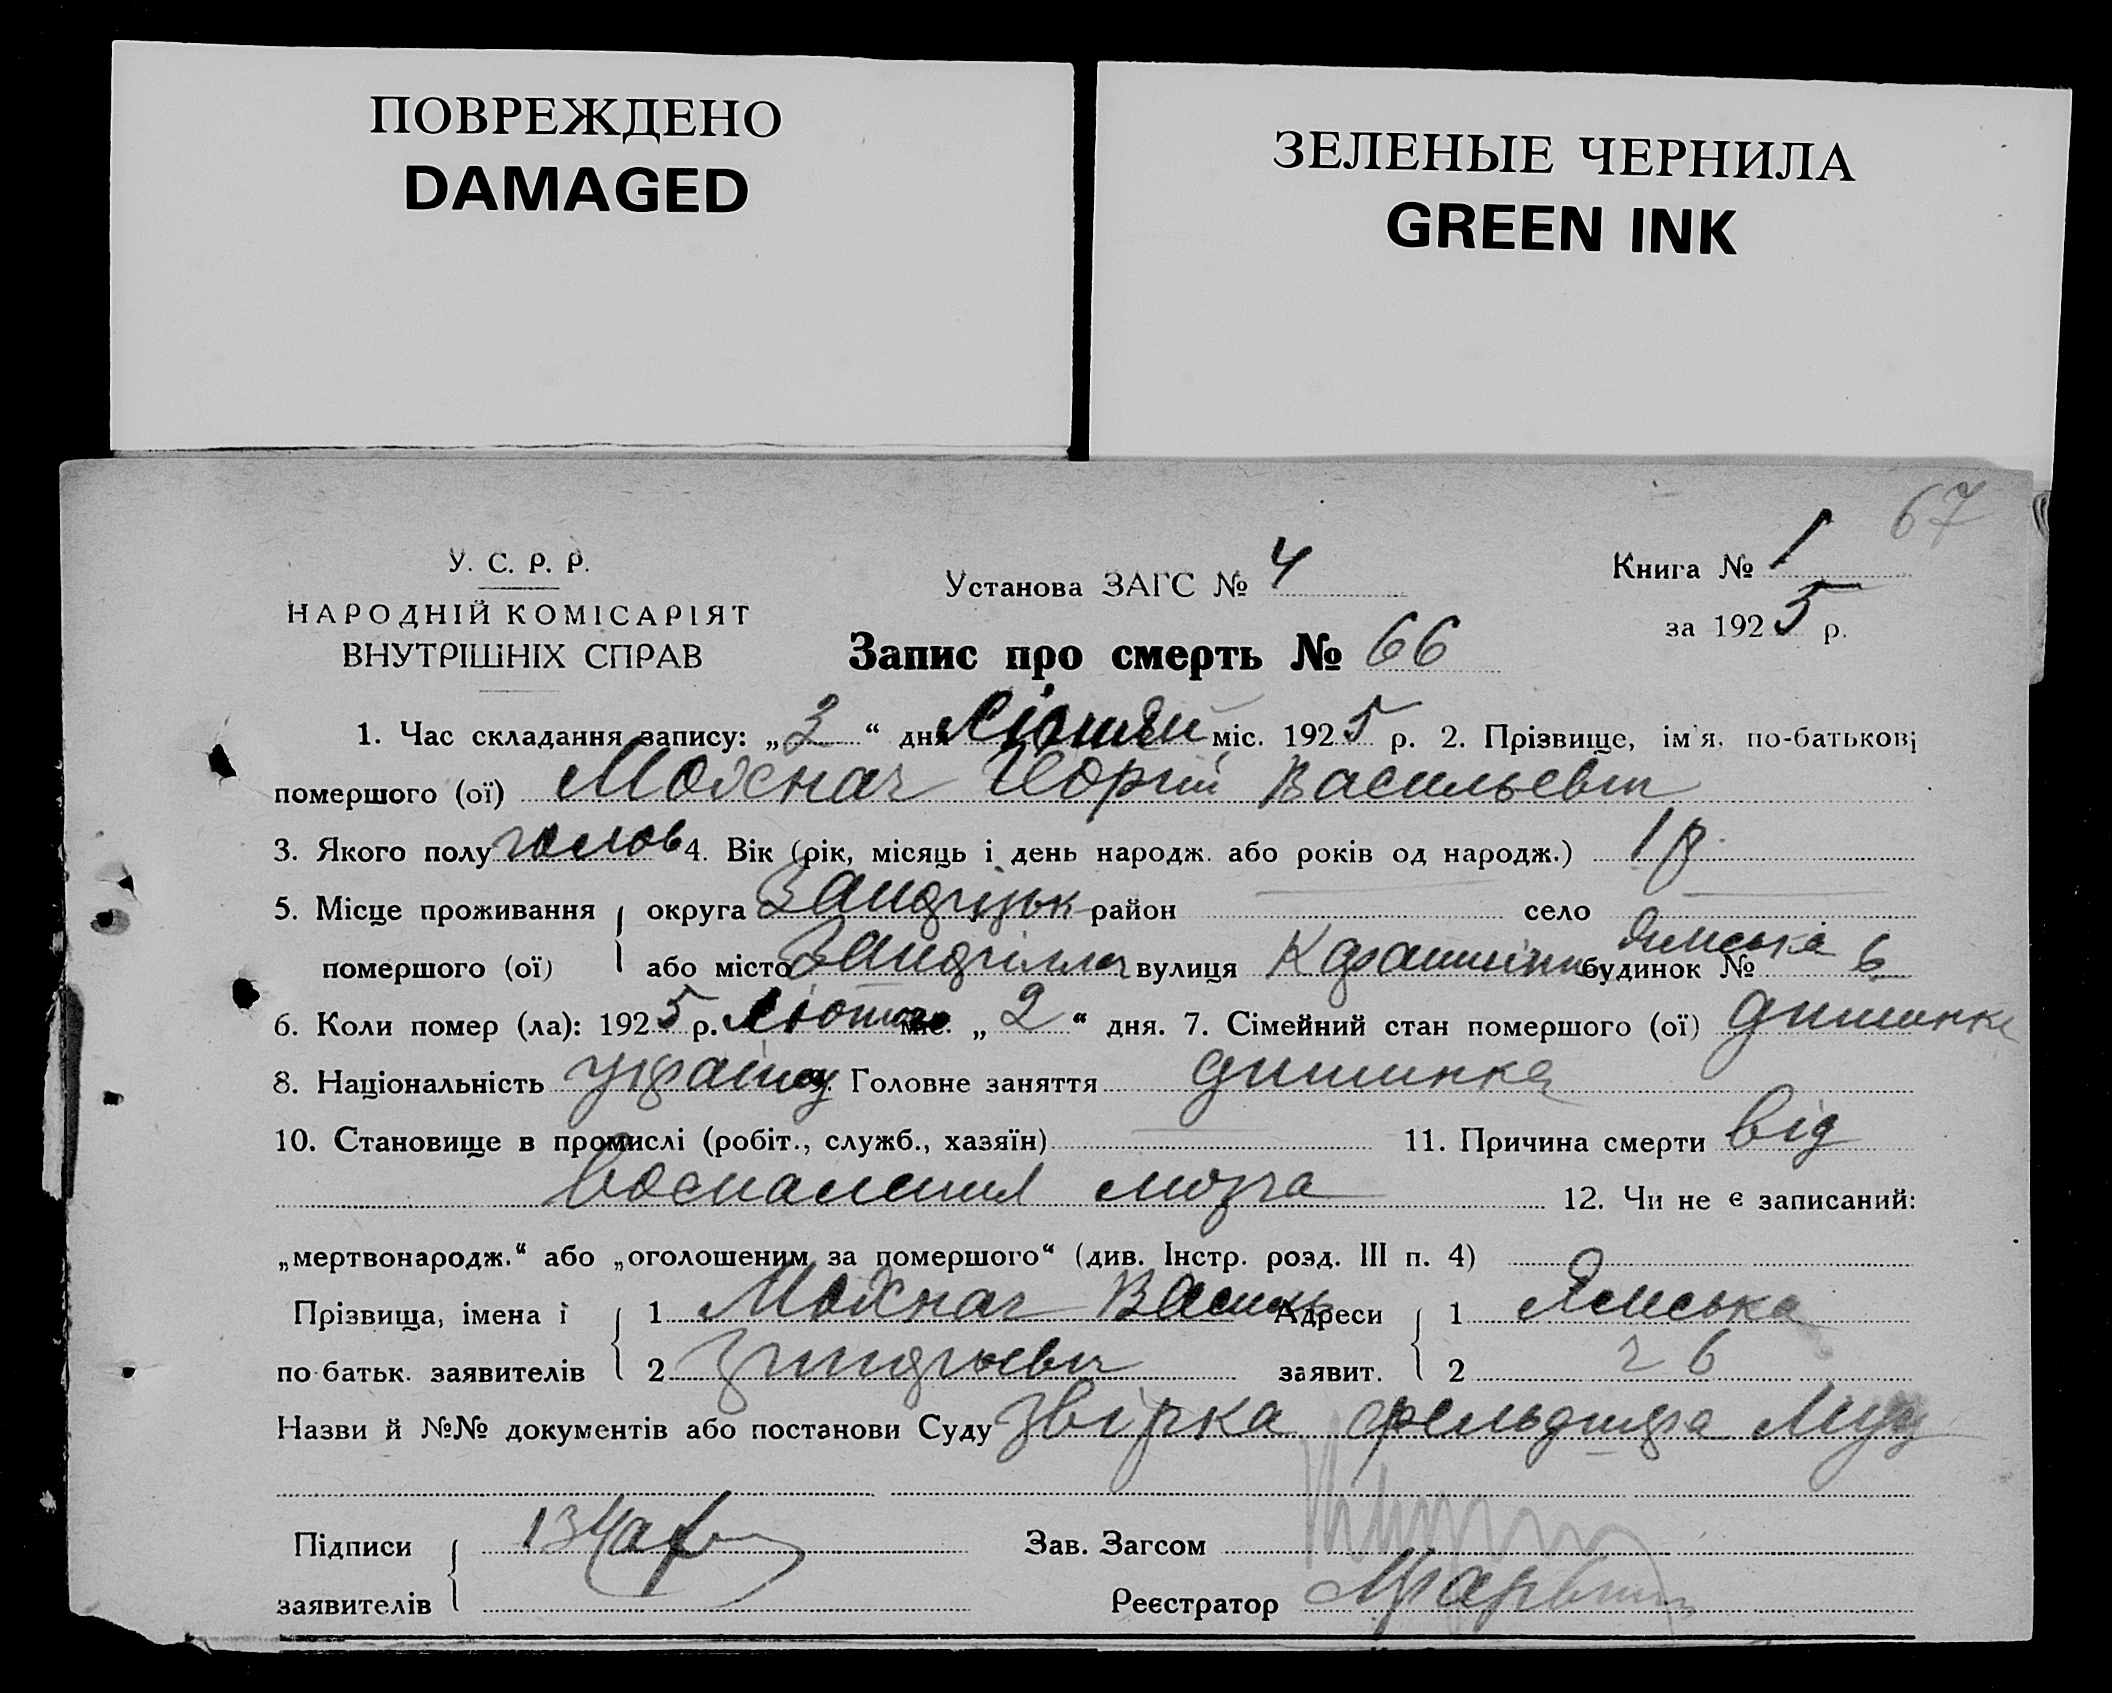 ПОВРЕЖДЕНО
DAMAGED
ЗЕЛЕНЫЕ ЧЕРНИЛА
GREEN INK
67
У. С. Р. Р.
НАРОДНІЙ КОМІСАРІЯТ
ВНУТРІШНІХ СПРАВ
Установа ЗАГС № 4
Книга № 1
за 1925 р.
Запис про смерть № 66
1. Час складання запису: „3“ дня міс. 1925 р. 2. Прізвище, ім'я, по-батькові
помершого (ої) Мохнач Георгій Васильевич
3. Якого полу чолов 4. Вік (рік, місяць і день народж. або років од народж.) 1 р.
5. Місце проживання округа район село
помершого (ої) або місто вулиця будинок № Ямська 6
6. Коли помер (ла): 1925 р. Лютого міс. „2“ дня. 7. Сімейний стан помершого (ої) дитинка
8. Національність україн 9. Головне заняття дитинка
10. Становище в промислі (робіт., служб., хазяїн) 11. Причина смерти від
воспаления мозга 12. Чи не є записаний:
„мертвонародж.“ або „оголошеним за помершого“ (див. Інстр. розд. III п. 4)
Прізвища, імена і 1 Мохнач Василь Адреси 1 Ямська
по батьк. заявителів 2 заявит. 2 6
Назви й №№ документів або постанови Суду фельдшера
Підписи Зав. Загсом
заявителів Реєстратор